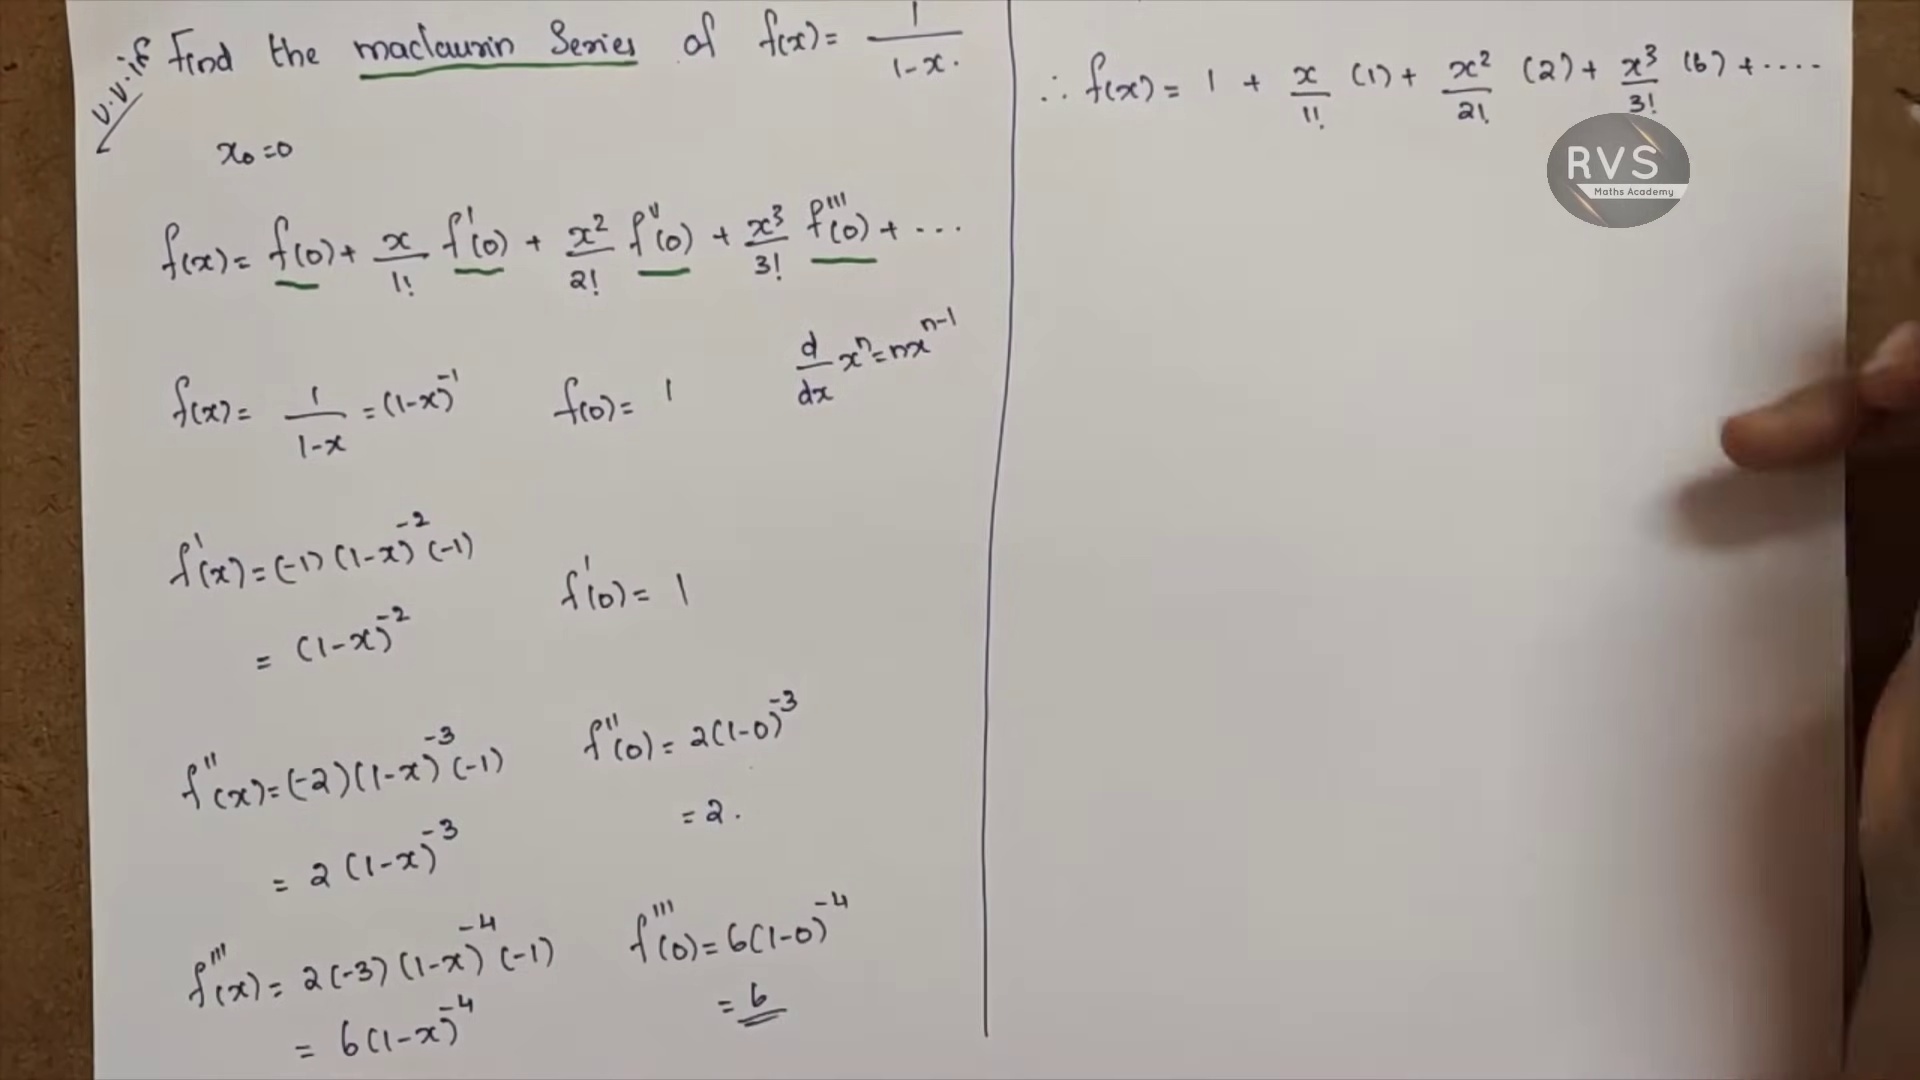 V.V.if Find the maclaurin Series of f(x) = 1/(1-x).
x₀ = 0
f(x) = f(0) + x/1! f'(0) + x²/2! f''(0) + x³/3! f'''(0) + ...
f(x) = 1/(1-x) = (1-x)⁻¹ f(0) = 1 d/dx xⁿ = nxⁿ⁻¹
f'(x) = (-1)(1-x)⁻²(-1) f'(0) = 1
= (1-x)⁻²
f''(x) = (-2)(1-x)⁻³(-1) f''(0) = 2(1-0)⁻³
= 2(1-x)⁻³ = 2.
f'''(x) = 2(-3)(1-x)⁻⁴(-1) f'''(0) = 6(1-0)⁻⁴
= 6(1-x)⁻⁴ = 6
∴ f(x) = 1 + x/1! (1) + x²/2! (2) + x³/3! (6) + ....
RVS
Maths Academy